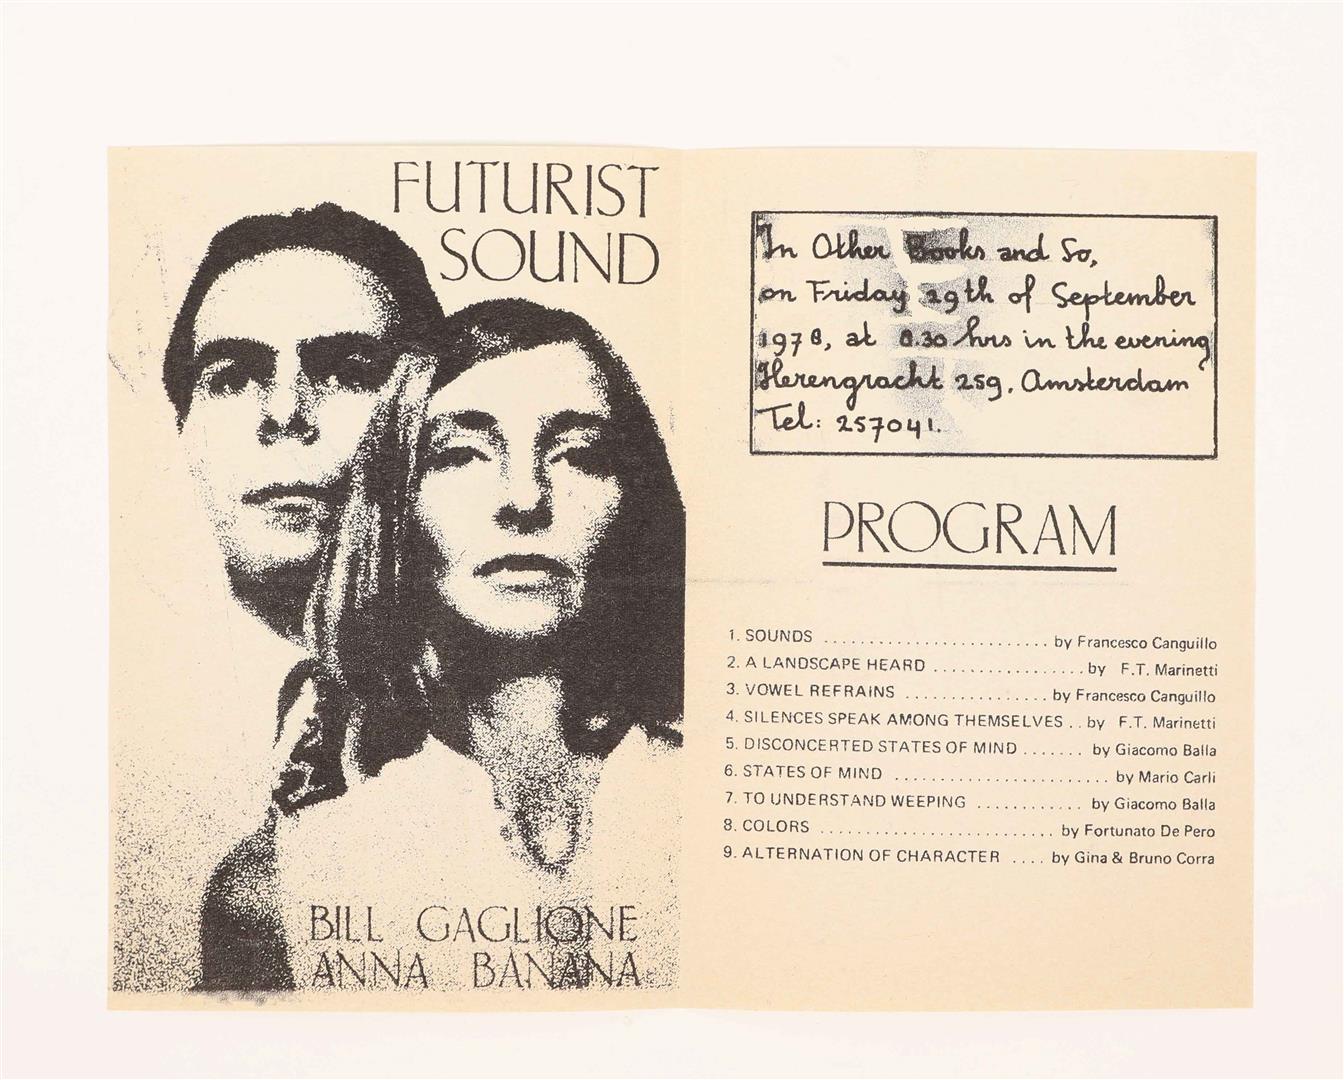 FUTURIST
SOUND
BILL GAGLIONE
ANNA BANANA
In Other Books and So,
on Friday 29th of September
1978, at 8.30 hrs in the evening
Herengracht 259, Amsterdam
Tel: 257041.
PROGRAM
1. SOUNDS ......................... by Francesco Canguillo
2. A LANDSCAPE HEARD ................ by F.T. Marinetti
3. VOWEL REFRAINS ................ by Francesco Canguillo
4. SILENCES SPEAK AMONG THEMSELVES .. by F.T. Marinetti
5. DISCONCERTED STATES OF MIND ....... by Giacomo Balla
6. STATES OF MIND ........................ by Mario Carli
7. TO UNDERSTAND WEEPING ............ by Giacomo Balla
8. COLORS .......................... by Fortunato De Pero
9. ALTERNATION OF CHARACTER .... by Gina & Bruno Corra